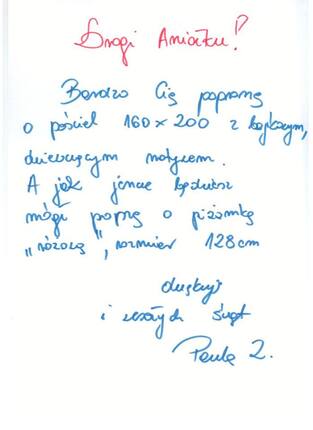 Drogi Aniołku!
Bardzo Cię poproszę
o pościel 160x200 z bajkowym,
dziewczęcym motywem.
A jak jeszcze będziesz
mógł poproszę o piżamkę
„różową", rozmiar 128cm
dziękuję
i wesołych Świąt
Paula Z.